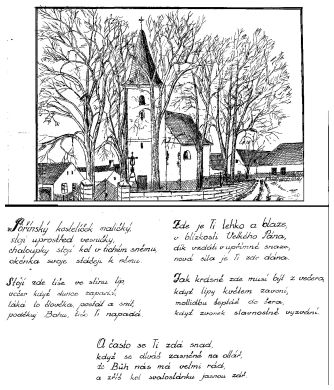 kostelíček maličký,
stojí uprostřed vesničky,
chaloupky stojí kol v tichém snění,
okénka svoje stádejí k němu.
Stojí zde tiše ve stínu lip
večer když slunce zapadá,
láká to člověka, postát a snít,
poděkuj Bohu, Ti napadá.
Zde je Ti lehko a blaze,
v blízkosti Velkého Pána,
dík vzdáti v upřímné snaze,
nová síla je Ti zde dána.
Jak krásné zde musí být z večera,
když lípy květem zavoní,
modlidbu šeptat do šera,
když zvonek slavnostně vyzvání.
A často se Ti zdá snad,
když se díváš zasněně na oltář,
že Bůh nás má velmi rád,
a zříš kol svatostánku jasnou zář.